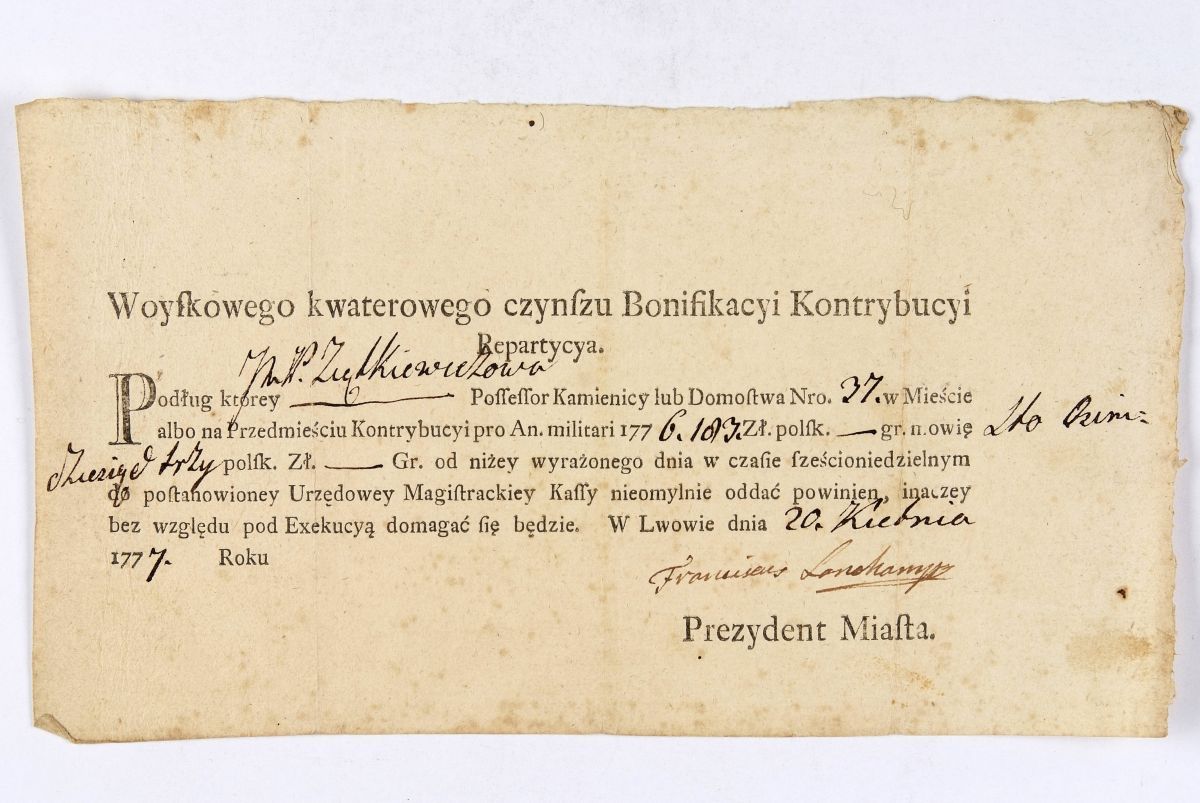 Woyſkowego kwaterowego czynſzu Bonifikacyi Kontrybucyi
Repartycya.
Podług ktorey JmP. Ziętkiewiczowa Poſſeſſor Kamienicy lub Domoſtwa Nro. 37. w Mieście
albo na Przedmieściu Kontrybucyi pro An. militari 1776. 183. Zł. polsk. — gr. mowię Sto Osim-
dziesiąd trzy polsk. Zł. — Gr. od niżey wyrażonego dnia w czasie ſześcioniedzielnym
do poſtanowioney Urzędowey Magiſtrackiey Kaſſy nieomylnie oddać powinien, inaczey
bez względu pod Exekucyą domagać się będzie. W Lwowie dnia 20. Kwietnia
1777. Roku
Franciscus
Prezydent Miaſta.